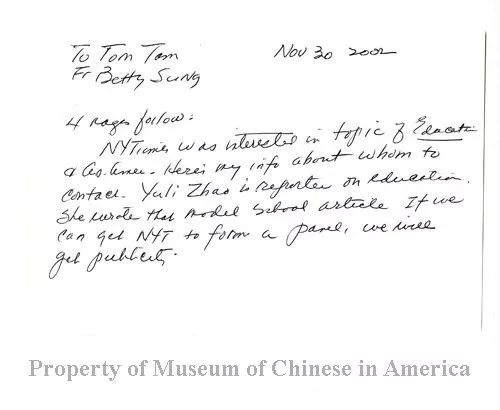 To Tom Tam
Nov 30 2002
Fr Betty Sung
4 pages follow:
NYTimes was interested in topic of Education
& As. Amer. Here's my info about whom to
contact. Yuli Zhao is reporter on education.
She wrote that model school article If we
can get NYT to form a panel, we will
get publicity.
Property of Museum of Chinese in America